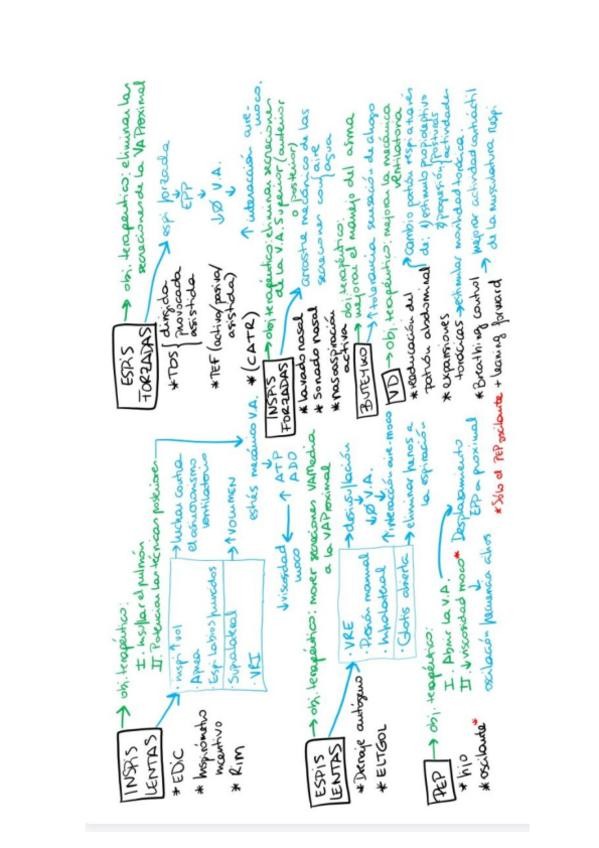 INSPIS LENTAS → obj. terapéutico:
I. Insuflar el pulmón
II. Potenciar las técnicas posteriores
* EDIC
* Inspirómetro incentivo
* RIM
· inspi ↑ vol
· Apnea
· Espi labios fruncidos
· Supralateral
· VRI
→ luchar contra el asincronismo ventilatorio
→ ↑ VOLUMEN
estrés mecánico V.A.
↓
↑ ATP
ADO
↓ viscosidad moco
ESPIS LENTAS → obj. terapéutico: mover secreciones VA Media
a la VA Proximal
* Drenaje autógeno
* ELTGOL
· VRE
· Presión manual
· Infralateral
· Glotis abierta
→ desinsuflación
↓
↓ Ø V.A.
↓
↑ interacción aire-moco
→ eliminar frenos a la espiración
PEP → obj. terapéutico:
I. Abrir la V.A.
II. ↓ viscosidad moco*
* fijo
* oscilante*
Desplazamiento
EPP a proximal
oscilación frecuencia cilios
*Sólo el PEP oscilante
ESPIS FORZADAS → obj. terapéutico: eliminar las
secreciones de la VA Proximal
* TOS { dirigida
provocada
asistida
* TEF (activa/pasiva/
asistida)
* (CATR)
espi forzada
↓
EPP
↓
↓ Ø V.A.
↓
↑ interacción aire-
moco.
INSPIS FORZADAS → obj. terapéutico: eliminar secreciones
de la V.A. Superior (anterior
o posterior)
* lavado nasal
* Sonado nasal
* nasoaspiración activa
arrastre mecánico de las
secreciones con { aire
agua
BUTEYKO → obj. terapéutico:
mejorar el manejo del asma
↑ tolerancia sensación de ahogo
VD → obj. terapéutico: mejorar la mecánica
ventilatoria
* reeducación del patrón abdominal
→ cambio patrón respi a través
de: 1) estímulo propioceptivo
2) progresión { posturas
actividades
* expansiones torácicas → estimular movilidad torácica.
* Breathing control
+ leaning forward
→ mejorar actividad contráctil
de la musculatura respi